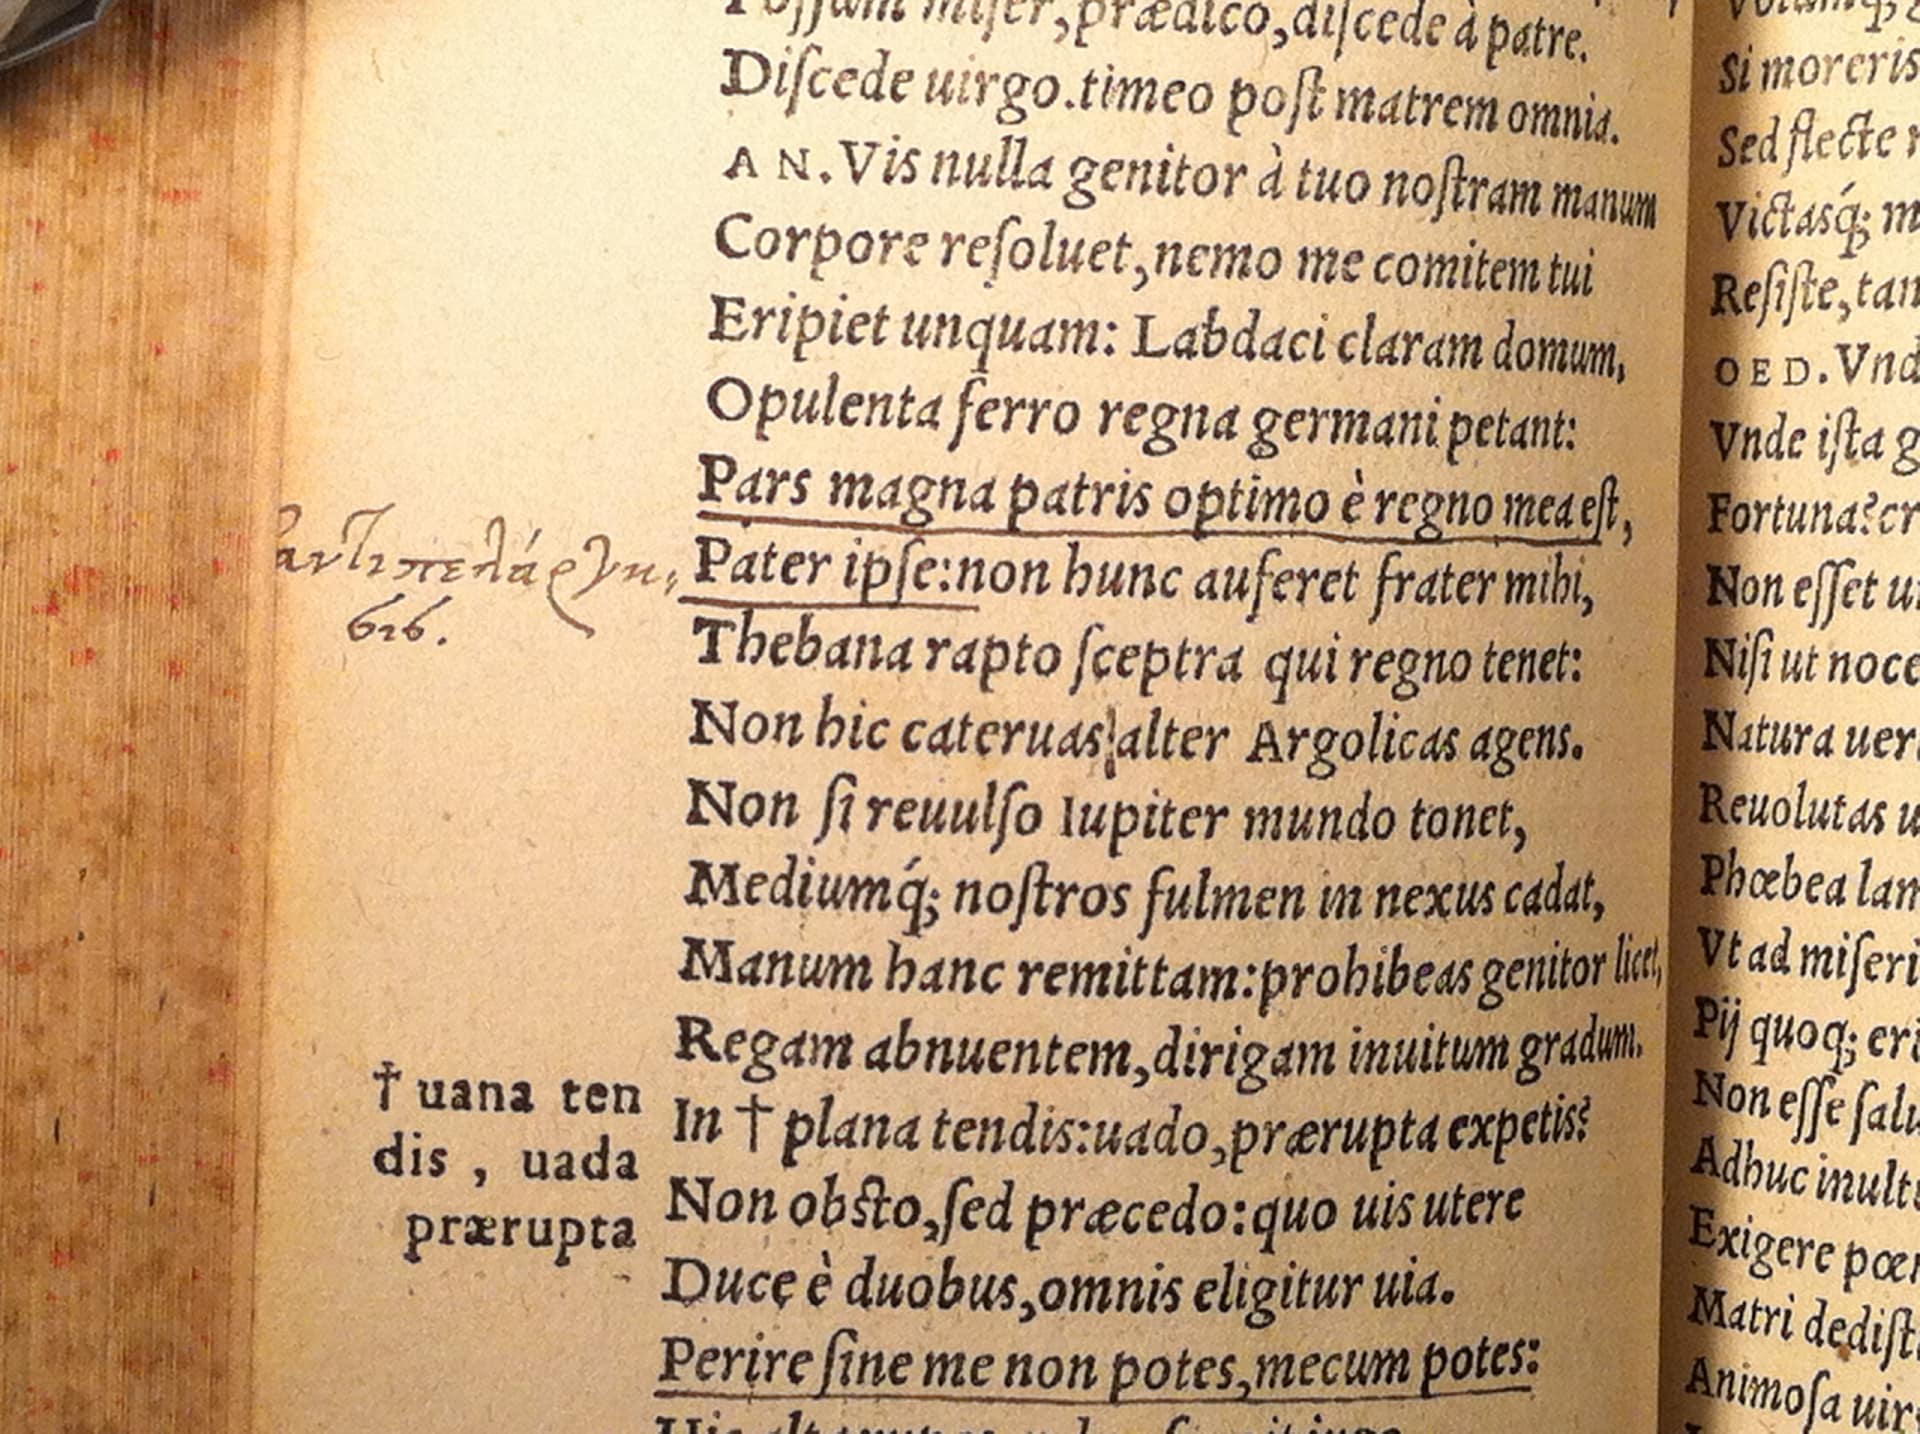 miser, prædico, discede à patre.
Discede uirgo. timeo post matrem omnia.
AN. Vis nulla genitor à tuo nostram manum
Corpore resoluet, nemo me comitem tui
Eripiet unquam: Labdaci claram domum,
Opulenta ferro regna germani petant:
Pars magna patris optimo è regno mea est,
Pater ipse: non hunc auferet frater mihi,
Thebana rapto sceptra qui regno tenet:
Non hic cateruas alter Argolicas agens.
Non si reuulso Iupiter mundo tonet,
Mediumq́; nostros fulmen in nexus cadat,
Manum hanc remittam: prohibeas genitor licet,
Regam abnuentem, dirigam inuitum gradum.
In † plana tendis: uado, prærupta expetis?
Non obsto, sed præcedo: quo uis utere
Duce è duobus, omnis eligitur uia.
Perire sine me non potes, mecum potes:
ἀντιπελάργη-
σις.
† uana ten
dis, uada
prærupta
Si moreris
Sed flecte
Victasq́;
Resiste,
OED.
Vnde ista
Fortuna?
Non esset
Nisi ut
Natura
Reuolutas
Phœbea
Vt ad
Pij quoq;
Non esse
Adhuc
Exigere
Matri
Animosa